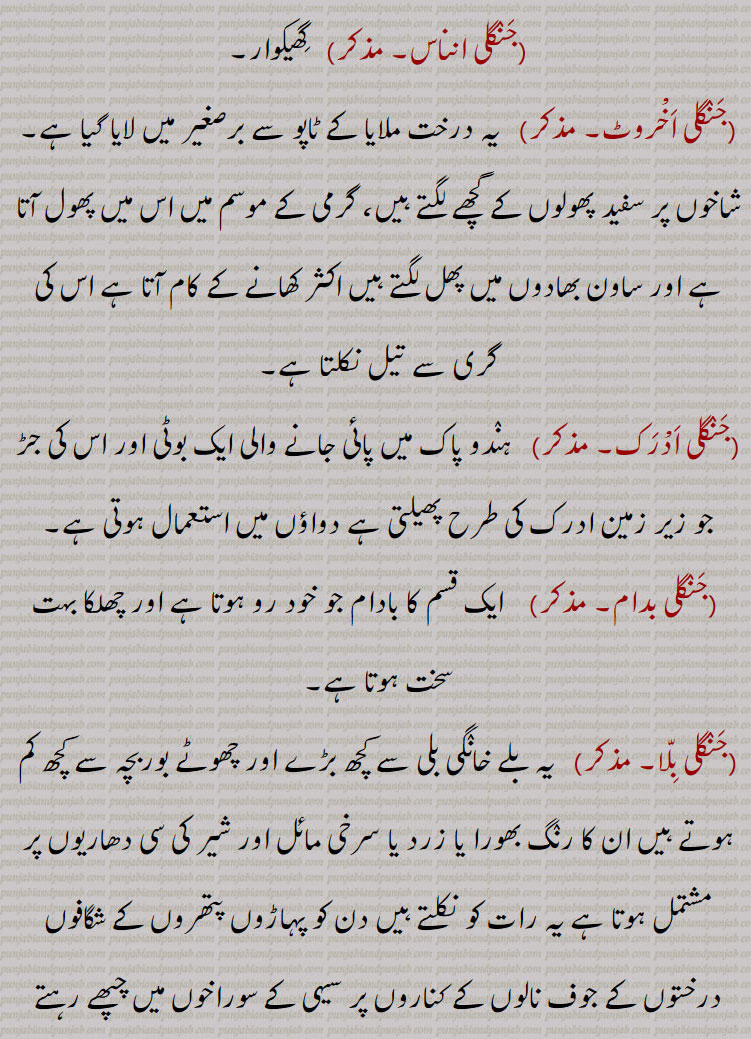 (جَنْگلی انناس۔ مذکر) گِھیکوار۔
(جَنْگلی اَخْروٹ۔ مذکر) یہ درخت ملایا کے ٹاپو سے برصغیر میں لایا گیا ہے۔
شاخوں پر سفید پھولوں کے گچھے لگتے ہیں، گرمی کے موسم میں اس میں پھول آتا
ہے اور ساون بھادوں میں پھل لگتے ہیں اکثر کھانے کے کام آتا ہے اس کی
گری سے تیل نکلتا ہے۔
(جَنْگلی اَدْرَک۔ مذکر) ہندو پاک میں پائی جانے والی ایک بوٹی اور اس کی جڑ
جو زیر زمین ادرک کی طرح پھیلتی ہے دواؤں میں استعمال ہوتی ہے۔
(جَنْگلی بدام۔ مذکر) ایک قسم کا بادام جو خود رو ہوتا ہے اور چھلکا بہت
سخت ہوتا ہے۔
(جَنْگلی بِلّا۔ مذکر) یہ بلے خانگی بلی سے کچھ بڑے اور چھوٹے بوربچہ سے کچھ کم
ہوتے ہیں ان کا رنگ بھورا یا زرد یا سرخی مائل اور شیر کی سی دھاریوں پر
مشتمل ہوتا ہے یہ رات کو نکلتے ہیں دن کو پہاڑوں پتھروں کے شگافوں
درختوں کے جوف نالوں کے کناروں پر سیہی کے سوراخوں میں چھپے رہتے